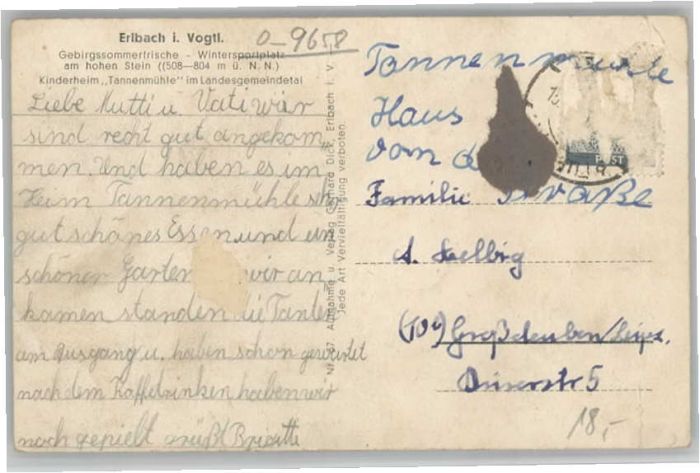 Erlbach i. Vogtl.
0-9658
Gebirgssommerfrische - Wintersportplatz
am hohen Stein ((508—804 m ü. N. N.)
Kinderheim „Tannenmühle" im Landesgemeindetal
Liebe Mutti u. Vati wir
sind recht gut angekom-
men. Und haben es im
Heim Tannenmühle sehr
gut schönes Essen und ein
schöner Garten wir an
kamen standen die Tanten
am Ausgang u. haben schon gewartet
nach dem Kaffetrinken haben wir
noch gepielt grüßt Brigitte
Aufnahme u. Verlag Gerhard Dick, Erlbach i. V.
Jede Art Vervielfältigung verboten.
Tannen
Haus
vom
Familie
A. Helbig
(10) Großdeuben/Leipz.
Dürerstr 5
18,-
POST